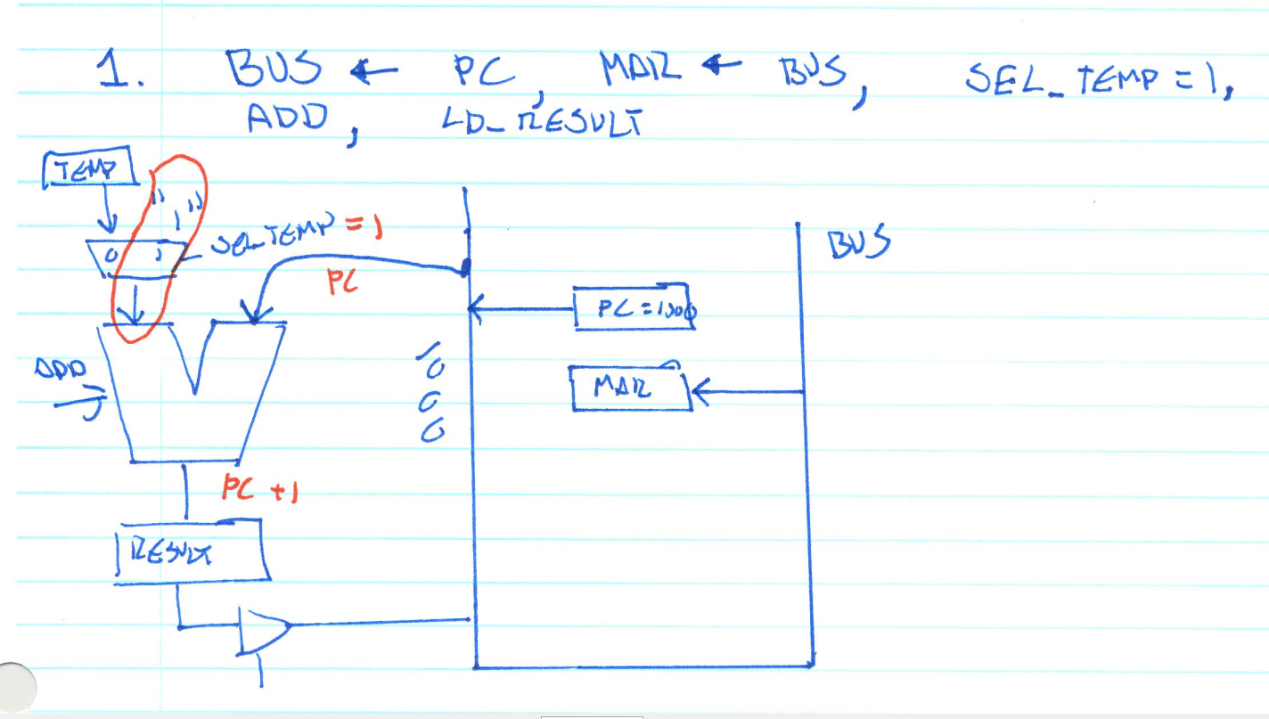 1. BUS ← PC, MAR ← BUS, SEL_TEMP = 1,
ADD, LD_RESULT
TEMP
"1"
0 1
SEL_TEMP = 1
PC
BUS
PC = 1000
ADD
1000
MAR
PC + 1
RESULT